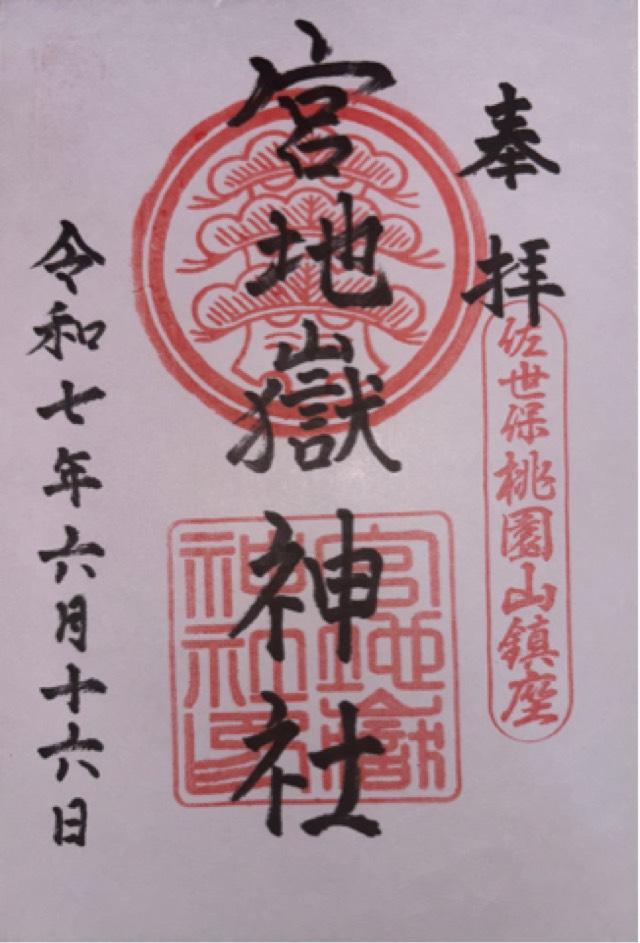 奉拝
佐世保桃園山鎮座
宮地嶽神社
宮地嶽
神社印
令和七年六月十六日